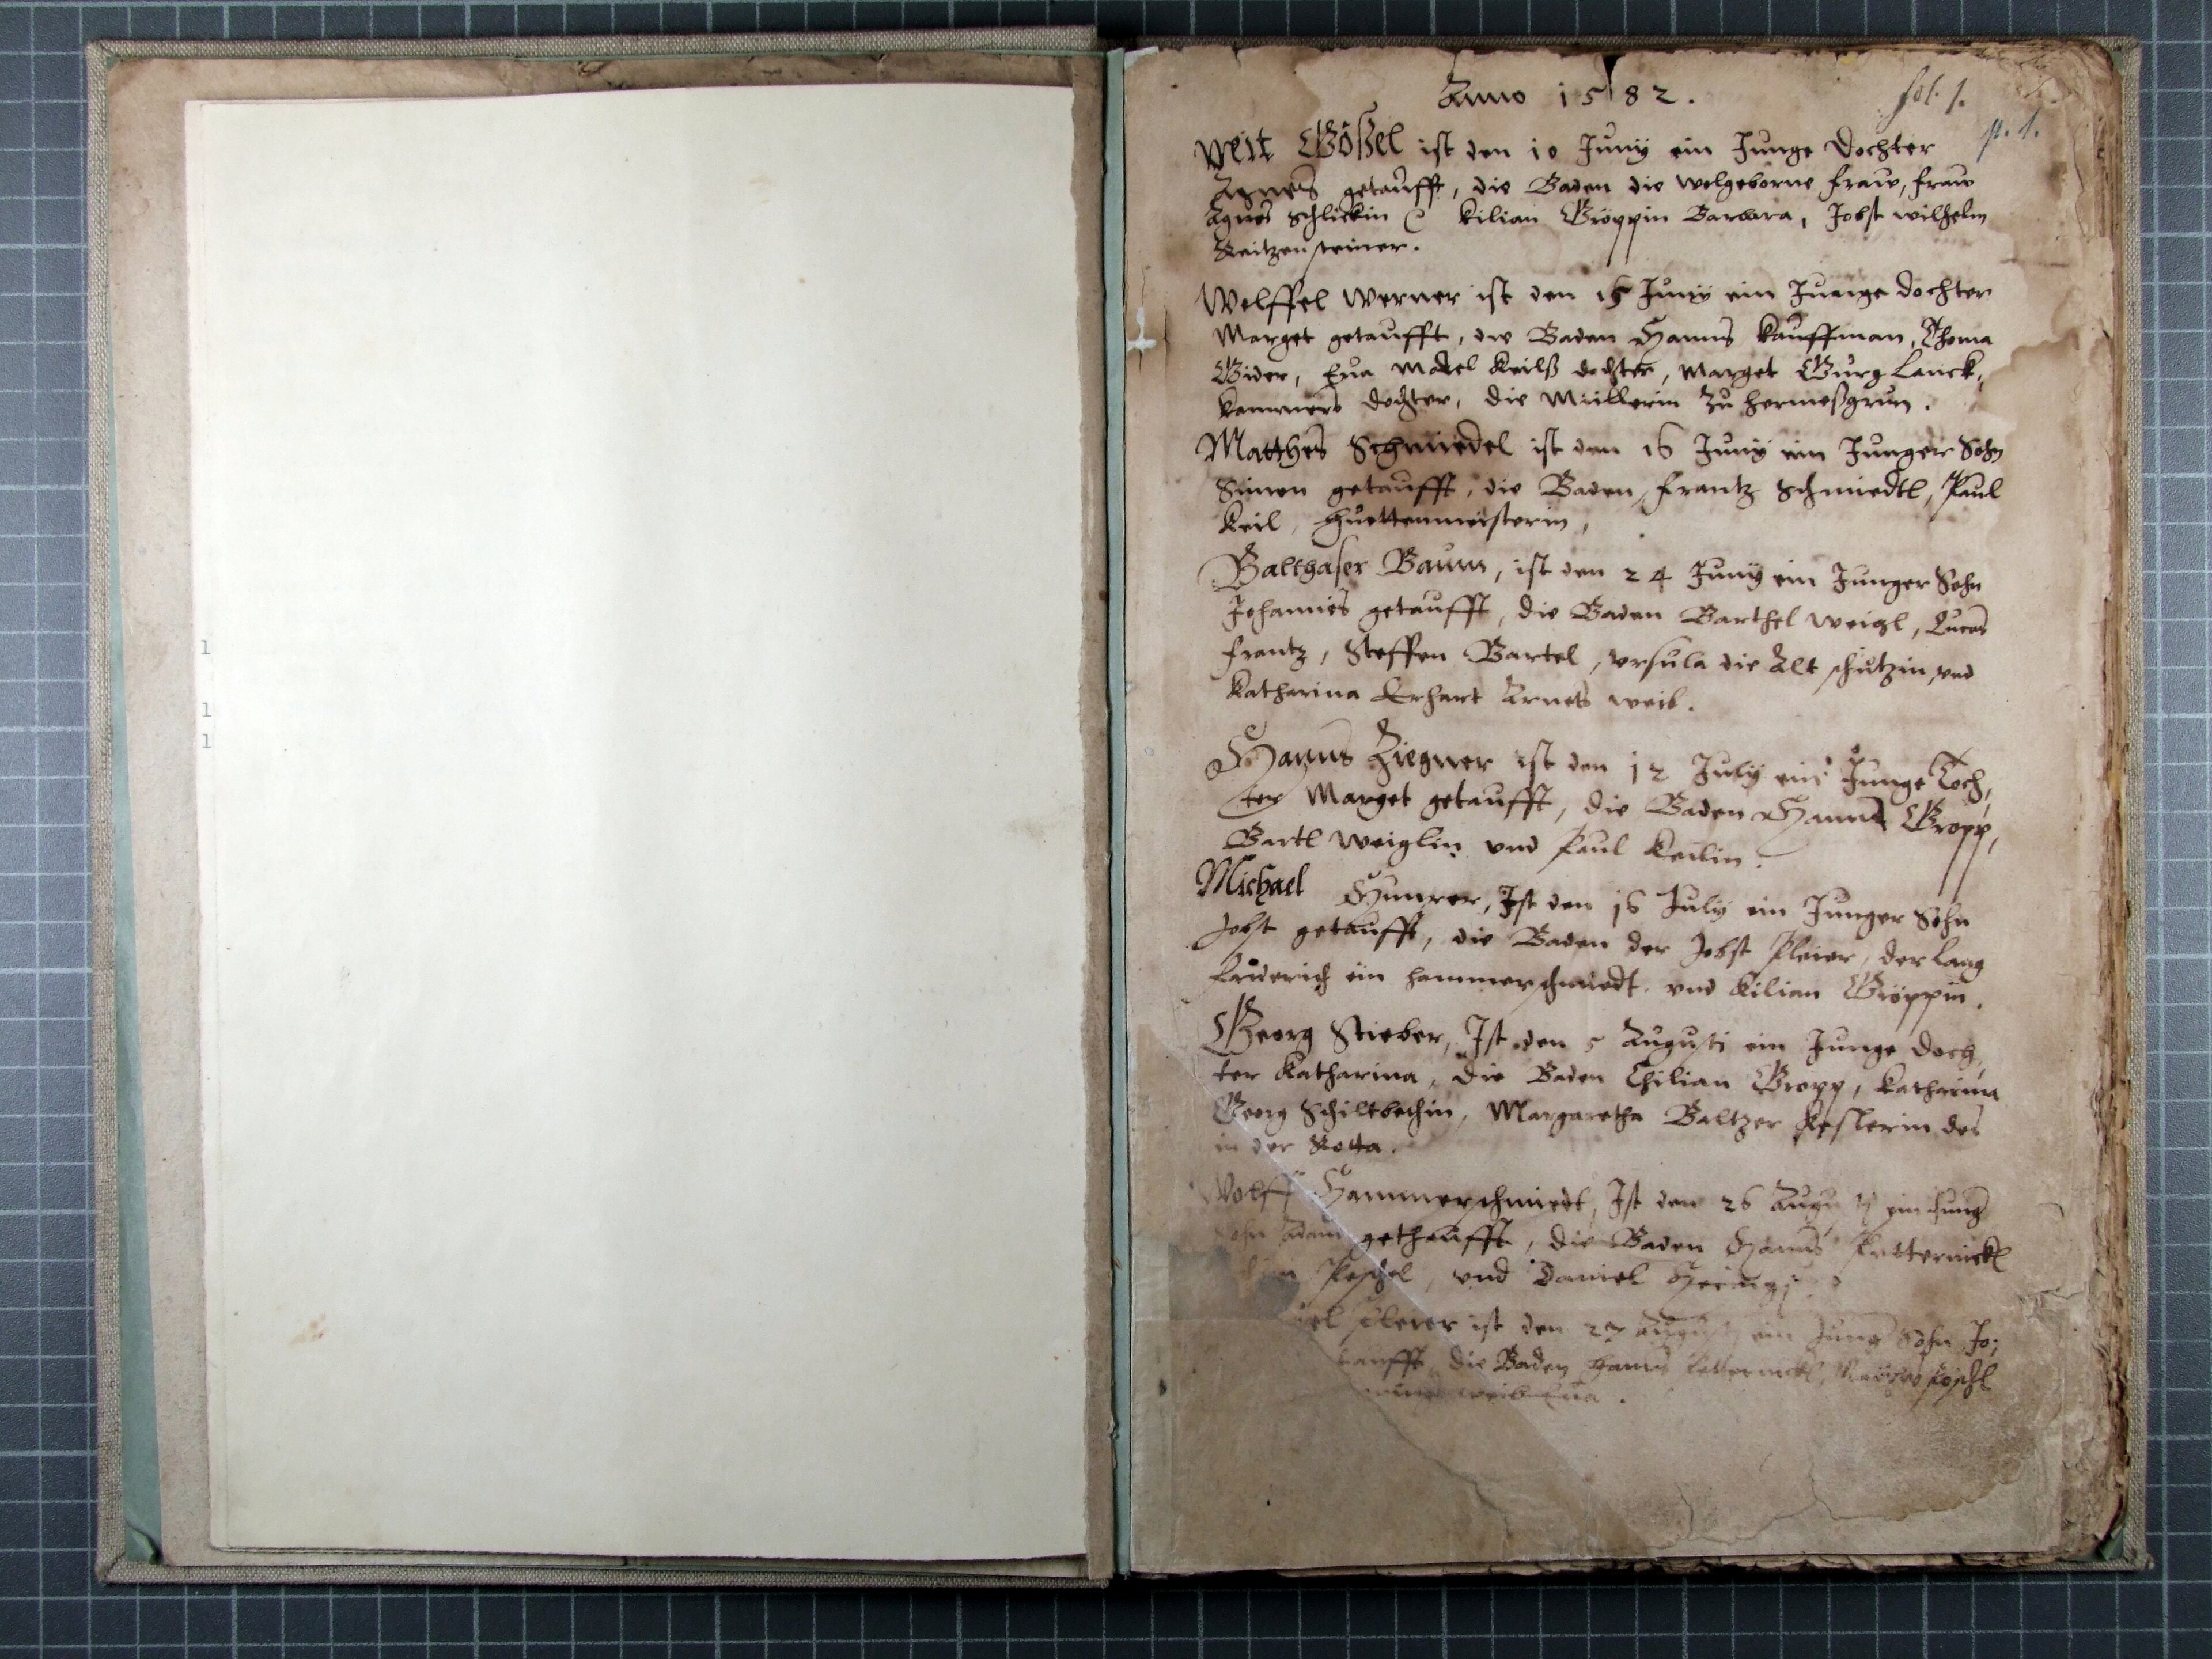 1
1
1
Anno 1582.
fol. 1.
p. 1.
Veit Gößel ist den 10 Junij ein Junge Dochter
Agnes getaufft, die Baden die wolgeborne fraw, fraw
Agnes Schlickin Kilian Gröppin Barbara, Jobst wilhelm
Reitzensteiner.
Wolffel Werner ist den 15 Junij ein Junge dochter
Marget getaufft, die Baden Hanns Kauffman, Thoma
Gider, Eua Keilß dochter, Marget Gürg Lanck,
Kammers dochter, die Müllerin zu hermeßgrun.
Matthes Schmiedel ist den 16 Junij ein Junger Sohn
Simon getaufft, die Baden, frantz Schmiedtl, Paul
Keil, Huettenmeisterin,
Balthaser Baum, ist den 24 Junij ein Junger Sohn
Johannes getaufft, die Baden Barthel weigl, Lucas
frantz, Steffen Bartel, vrsula die Alt schützin, vnd
Katharina Erhart Arnets weib.
Hanns Ziegner ist den 12 Julij ein Junge Toch,
ter Marget getaufft, die Baden Hanns Gropp,
Bartl weiglin vnd Paul Keilin.
Michael Ist den 16 Julij ein Junger Sohn
Jobst getaufft, die Baden der Jobst Pleier, der lang
friderich ein hammerschmiedt. vnd Kilian Gröppin.
Georg Stieber, Ist den 5 Augusti ein Junge Doch,
ter Katharina, die Baden Chilian Gropp, Katharina
Georg Schiltbachin, Margaretha Baltzer Keslerin des
in der Rotta.
Wolff Hammerschmiedt, Ist den 26 Augusti ein Jung
Sohn Adam gethaufft, die Baden Hanns
Peschel, vnd Daniel
ist den 27 Augusti ein Jung Sohn, Jo;
taufft, die Baden Hanns
weib Eua.